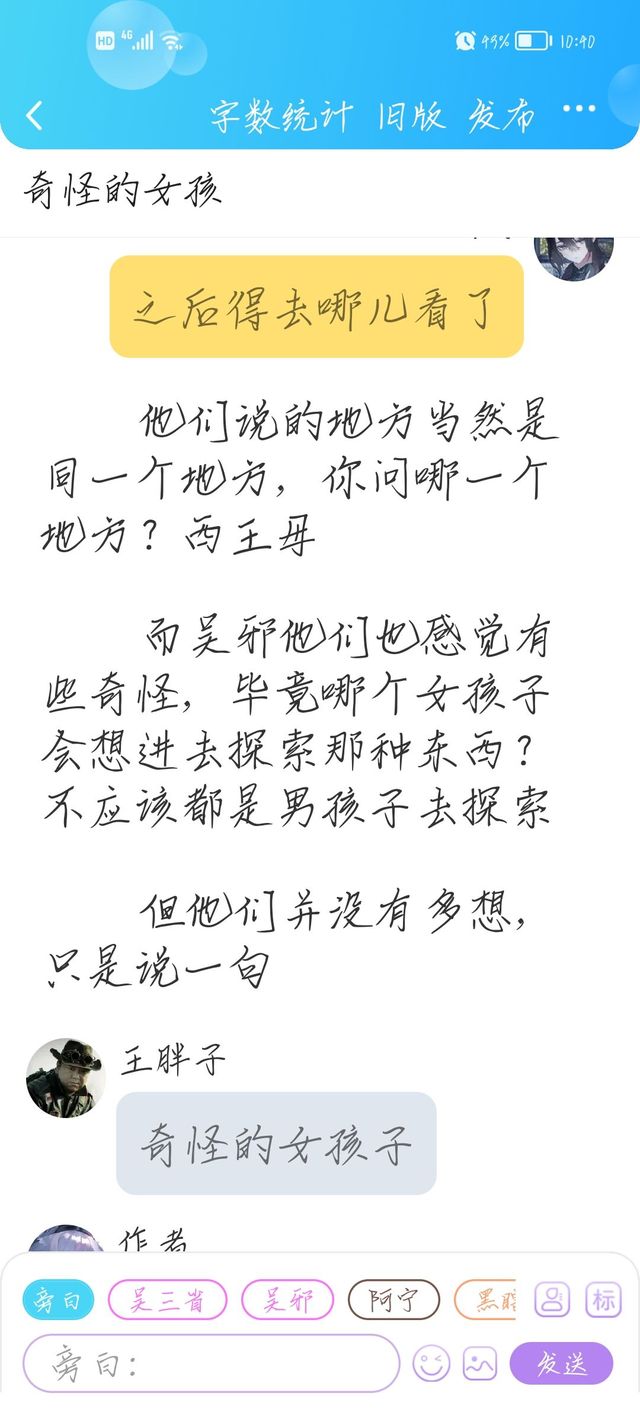 HD 4G 43% 10:40
字数统计 旧版 发布
奇怪的女孩
之后得去哪儿看了
他们说的地方当然是
同一个地方，你问哪一个
地方？西王母
而吴邪他们也感觉有
些奇怪，毕竟哪个女孩子
会想进去探索那种东西？
不应该都是男孩子去探索
但他们并没有多想，
只是说一句
王胖子
奇怪的女孩子
作者
旁白 吴三省 吴邪 阿宁 黑瞎 标
旁白：
发送